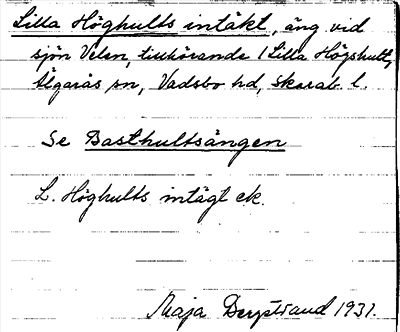 Lilla Höghults intäkt, äng vid
sjön Velen, tillhörande 1 Lilla Högshult,
Älgarås sn, Vadsbo hd, Skarab. l.
Se Basthultsängen
L. Höghults intägt ek.
Maja Bergstrand 1931.